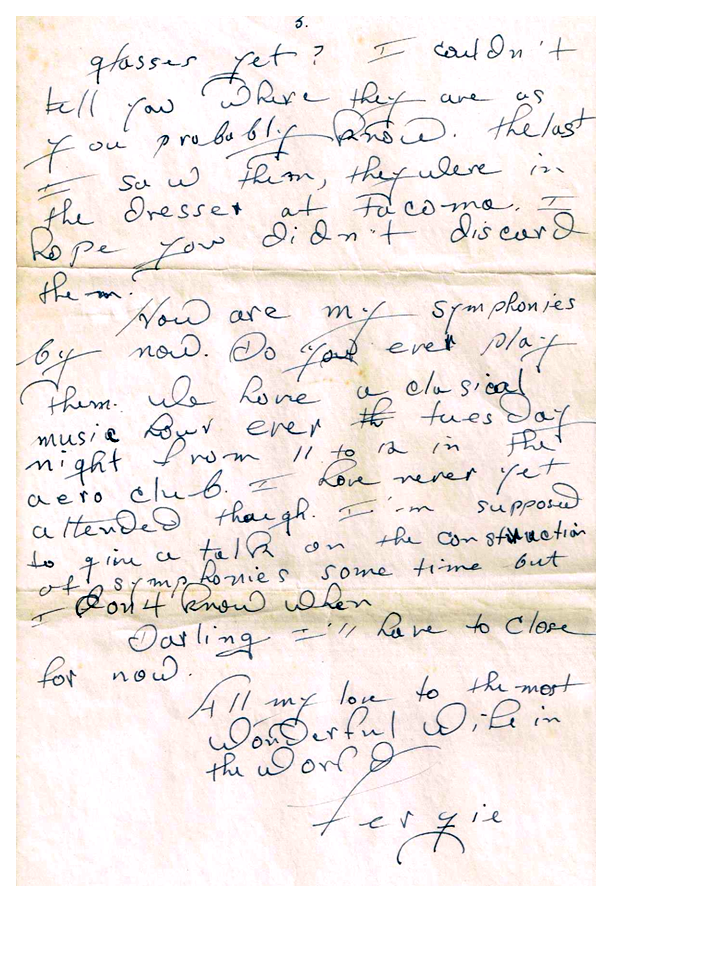 5.
glasses yet? I couldn't
tell you where they are as
you probably know. the last
I saw them, they were in
the dresser at Tacoma. I
hope you didn't discard
them.
How are my symphonies
by now. Do you ever play
them. We have a clasical
music hour ever tuesday
night from 11 to 12 in the
aero club. I have never yet
attended though. I'm supposed
to give a talk on the construction
of symphonies some time but
I don't know when
Darling I'll have to close
for now.
All my love to the most
wonderful wife in
the world
Fergie